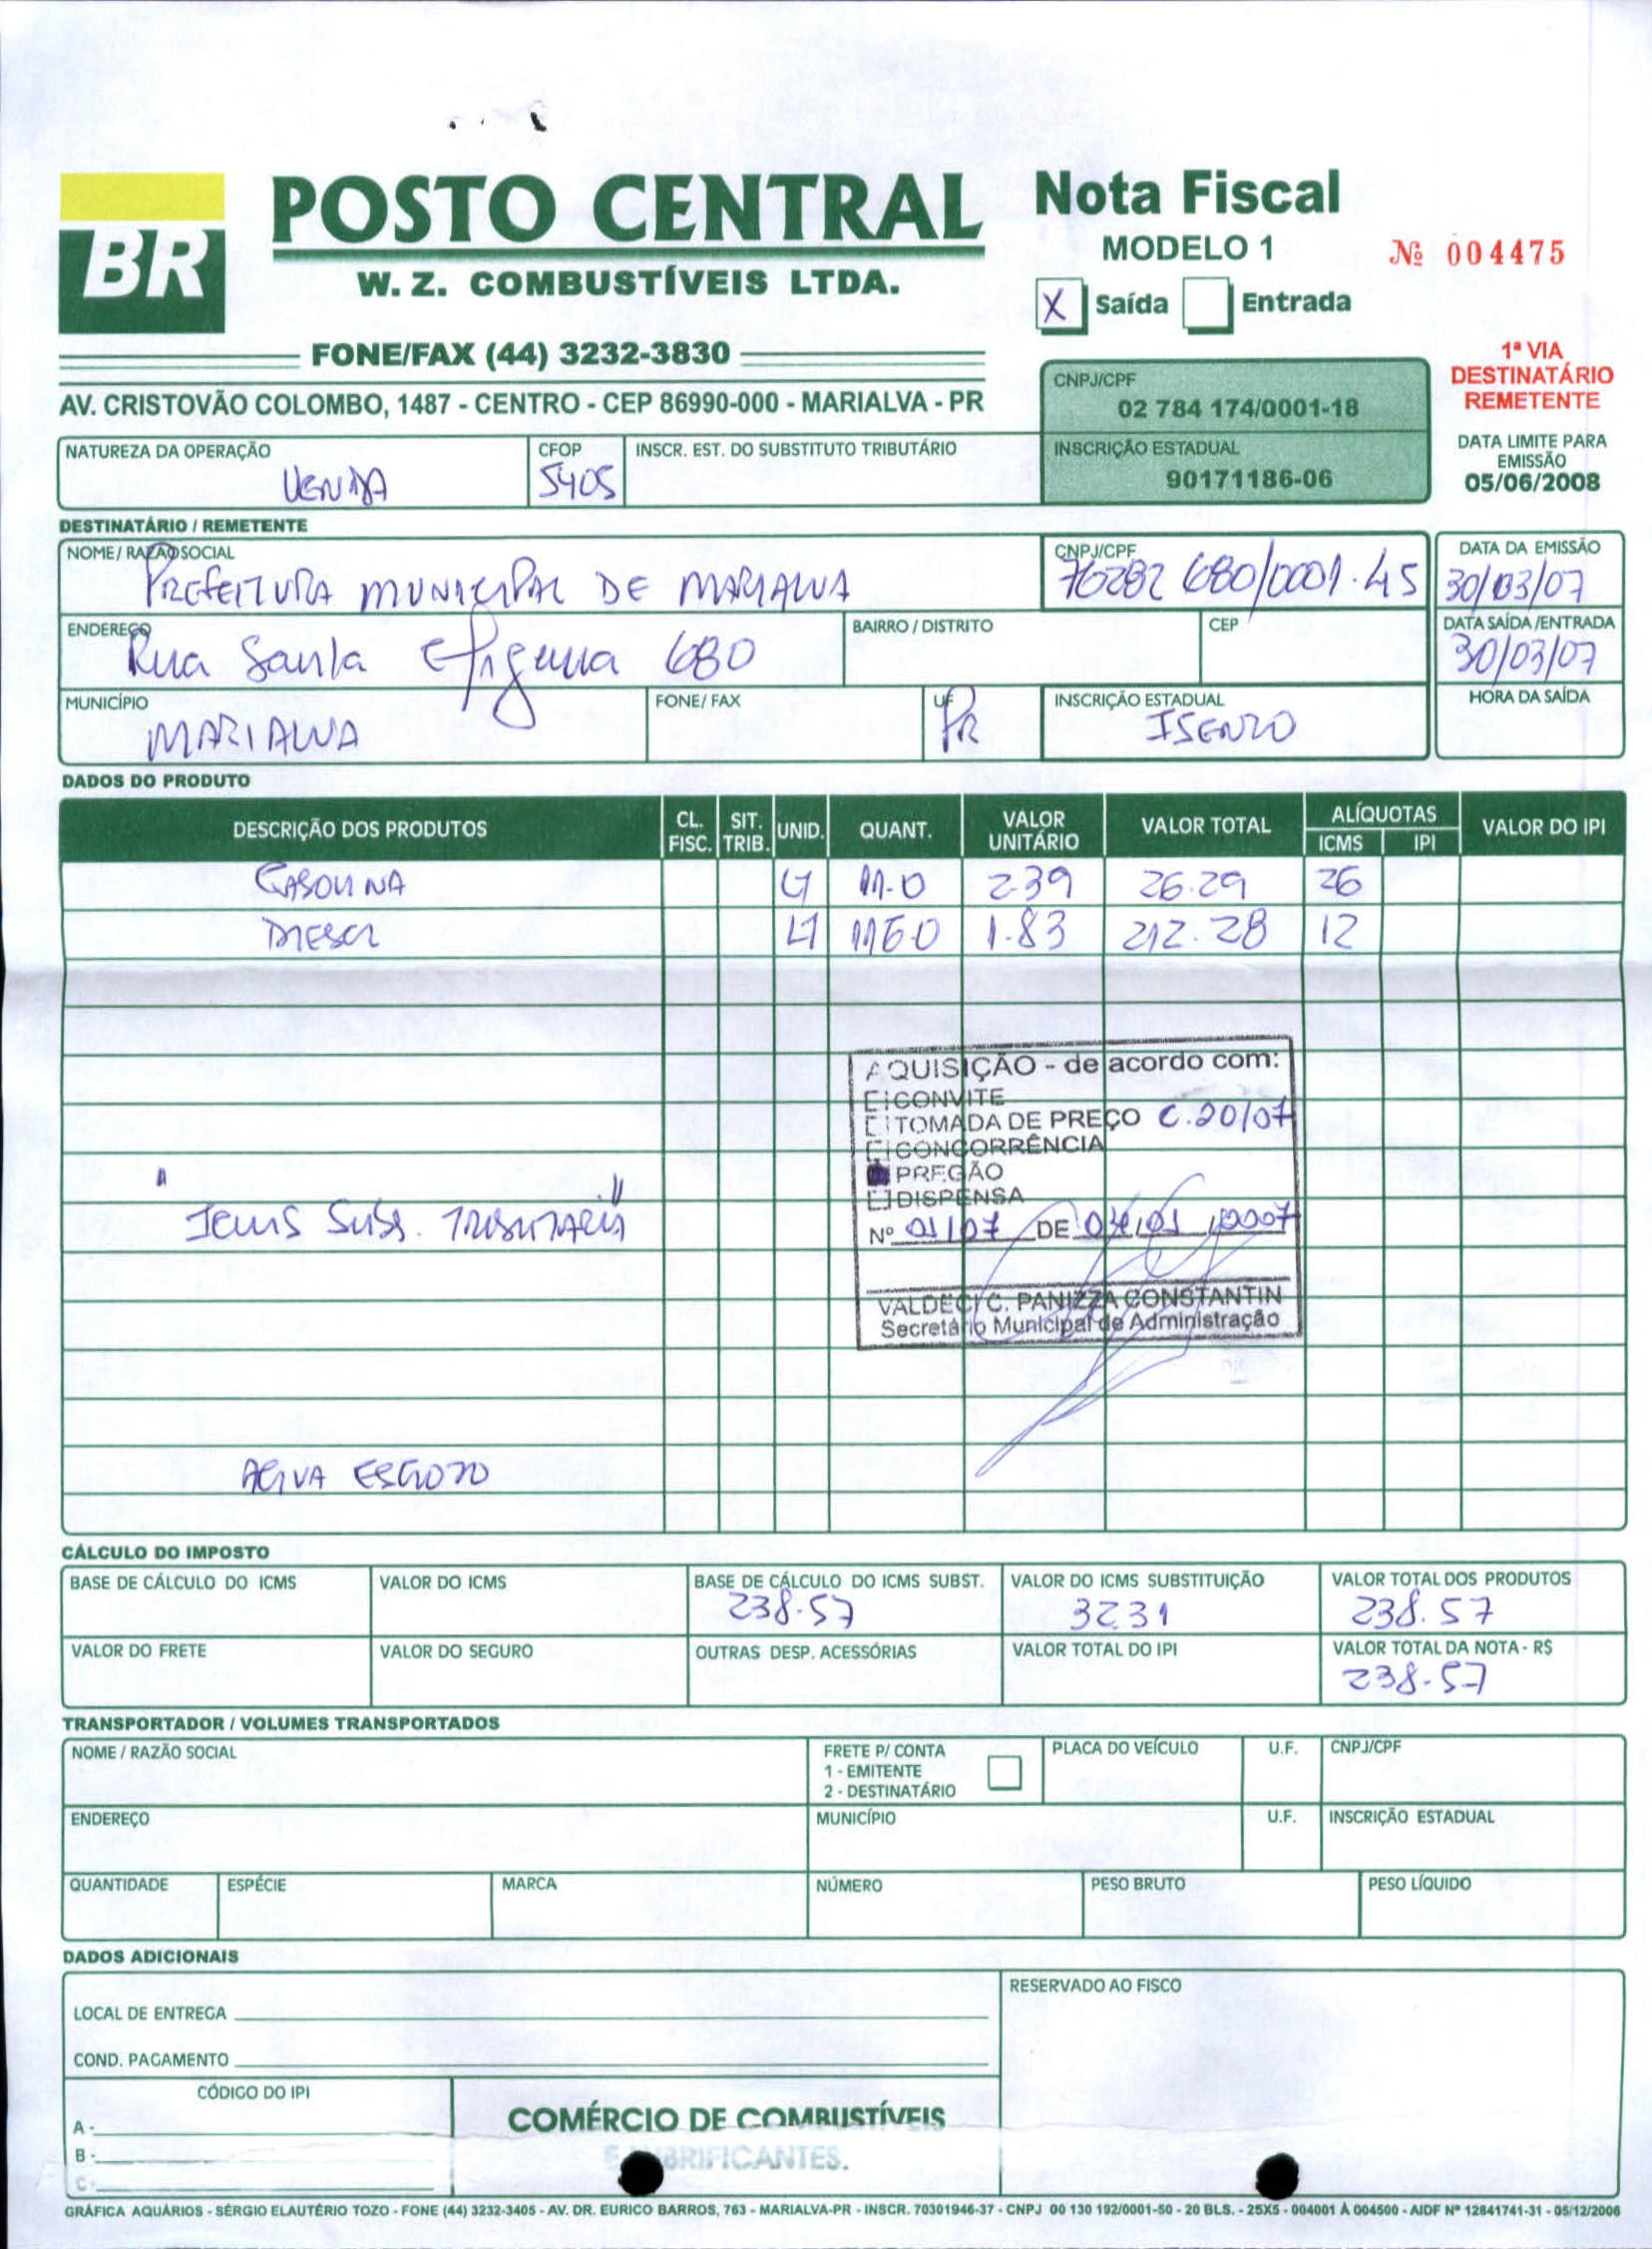 BR
POSTO CENTRAL
W. Z. COMBUSTÍVEIS LTDA.
FONE/FAX (44) 3232-3830
AV. CRISTOVÃO COLOMBO, 1487 - CENTRO - CEP 86990-000 - MARIALVA - PR
Nota Fiscal
MODELO 1
Nº 004475
X Saída Entrada
1ª VIA
DESTINATÁRIO
REMETENTE
CNPJ/CPF
02 784 174/0001-18
INSCRIÇÃO ESTADUAL
90171186-06
DATA LIMITE PARA
EMISSÃO
05/06/2008
NATUREZA DA OPERAÇÃO
VENDA
CFOP
5405
INSCR. EST. DO SUBSTITUTO TRIBUTÁRIO
DESTINATÁRIO / REMETENTE
NOME / RAZÃO SOCIAL
PREFEITURA MUNICIPAL DE MARIALVA
CNPJ/CPF
76282 680/0001.45
DATA DA EMISSÃO
30/03/07
ENDEREÇO
Rua Santa Efigenia 680
BAIRRO / DISTRITO
CEP
DATA SAÍDA /ENTRADA
30/03/07
MUNICÍPIO
MARIALVA
FONE/ FAX
UF
PR
INSCRIÇÃO ESTADUAL
ISENTO
HORA DA SAÍDA
DADOS DO PRODUTO
DESCRIÇÃO DOS PRODUTOS CL. FISC. SIT. TRIB. UNID. QUANT. VALOR UNITÁRIO VALOR TOTAL ALÍQUOTAS ICMS IPI VALOR DO IPI
GASOLINA LT 11.0 2.39 26.29 26
DIESEL LT 116.0 1.83 212.28 12
AQUISIÇÃO - de acordo com:
CONVITE
TOMADA DE PREÇO C. 20/07
CONCORRÊNCIA
PREGÃO
DISPENSA
Nº 01/07 DE 04/01/2007
VALDECI C. PANIZZA CONSTANTIN
Secretário Municipal de Administração
" Icms Subs. TRIBUTARIA "
AGUA ESGOTO
CÁLCULO DO IMPOSTO
BASE DE CÁLCULO DO ICMS
VALOR DO ICMS
BASE DE CÁLCULO DO ICMS SUBST.
238.57
VALOR DO ICMS SUBSTITUIÇÃO
32.31
VALOR TOTAL DOS PRODUTOS
238.57
VALOR DO FRETE
VALOR DO SEGURO
OUTRAS DESP. ACESSÓRIAS
VALOR TOTAL DO IPI
VALOR TOTAL DA NOTA - R$
238.57
TRANSPORTADOR / VOLUMES TRANSPORTADOS
NOME / RAZÃO SOCIAL
FRETE P/ CONTA
1 - EMITENTE
2 - DESTINATÁRIO
PLACA DO VEÍCULO
U.F.
CNPJ/CPF
ENDEREÇO
MUNICÍPIO
U.F.
INSCRIÇÃO ESTADUAL
QUANTIDADE
ESPÉCIE
MARCA
NÚMERO
PESO BRUTO
PESO LÍQUIDO
DADOS ADICIONAIS
LOCAL DE ENTREGA
COND. PAGAMENTO
RESERVADO AO FISCO
CÓDIGO DO IPI
A -
B -
C -
COMÉRCIO DE COMBUSTÍVEIS
E LUBRIFICANTES.
GRÁFICA AQUÁRIOS - SÉRGIO ELAUTÉRIO TOZO - FONE (44) 3232-3405 - AV. DR. EURICO BARROS, 763 - MARIALVA-PR - INSCR. 70301946-37 - CNPJ 00 130 192/0001-50 - 20 BLS. - 25X5 - 004001 À 004500 - AIDF Nº 12841741-31 - 05/12/2006